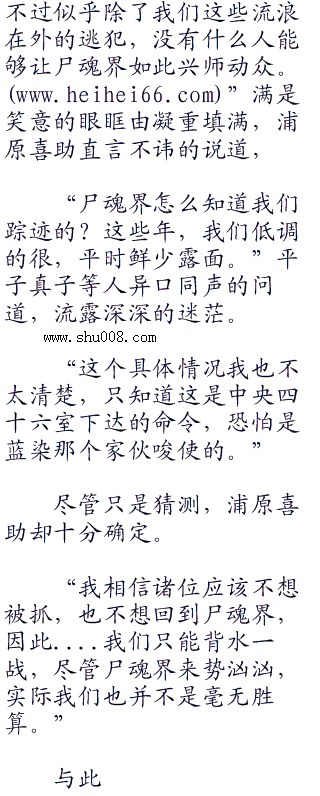 不过似乎除了我们这些流浪
在外的逃犯，没有什么人能
够让尸魂界如此兴师动众。
(www.heihei66.com)”满是
笑意的眼眶由凝重填满，浦
原喜助直言不讳的说道，
“尸魂界怎么知道我们
踪迹的？这些年，我们低调
的很，平时鲜少露面。”平
子真子等人异口同声的问
道，流露深深的迷茫。
www.shu008.com
“这个具体情况我也不
太清楚，只知道这是中央四
十六室下达的命令，恐怕是
蓝染那个家伙唆使的。”
尽管只是猜测，浦原喜
助却十分确定。
“我相信诸位应该不想
被抓，也不想回到尸魂界，
因此....我们只能背水一
战，尽管尸魂界来势汹汹，
实际我们也并不是毫无胜
算。”
与此